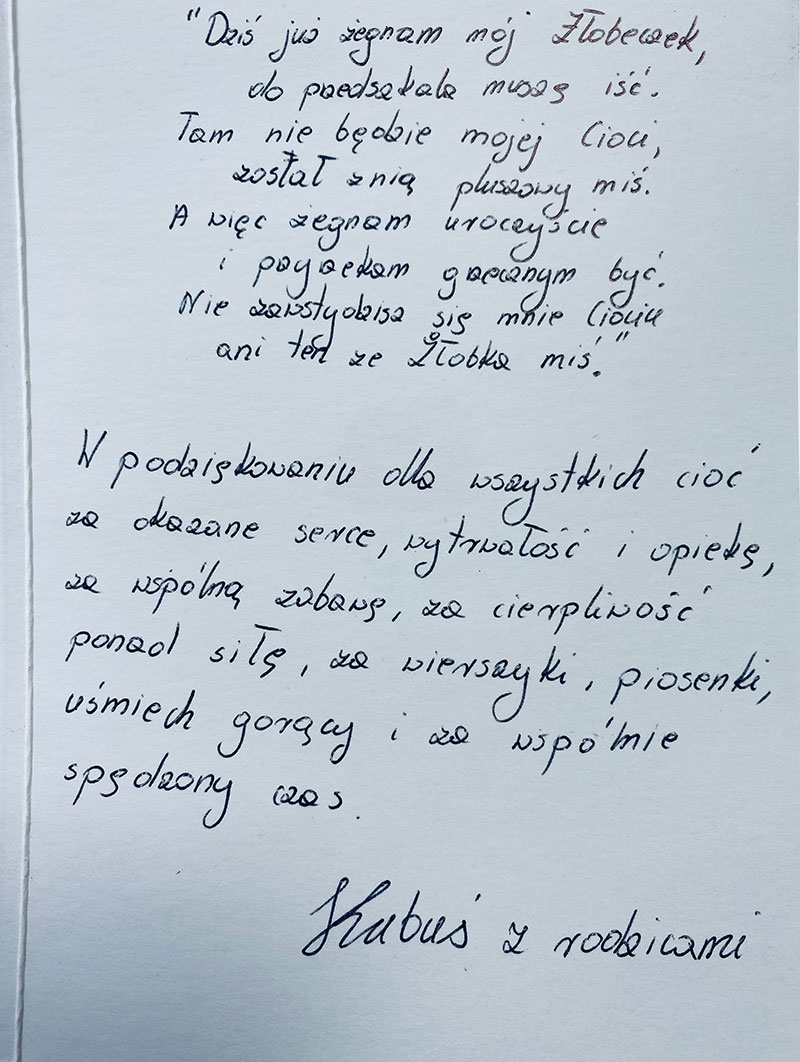 "Dziś już żegnam mój Żłobeczek,
do przedszkala muszę iść.
Tam nie będzie mojej Cioci,
został z nią pluszowy miś.
A więc żegnam uroczyście
i przyrzekam grzecznym być.
Nie zawstydzisz się mnie Ciociu
ani ten ze Żłobka miś."
W podziękowaniu dla wszystkich cioć
za okazane serce, wytrwałość i opiekę,
za wspólną zabawę, za cierpliwość
ponad siłę, za wierszyki, piosenki,
uśmiech gorący i za wspólnie
spędzony czas.
Kubuś z rodzicami